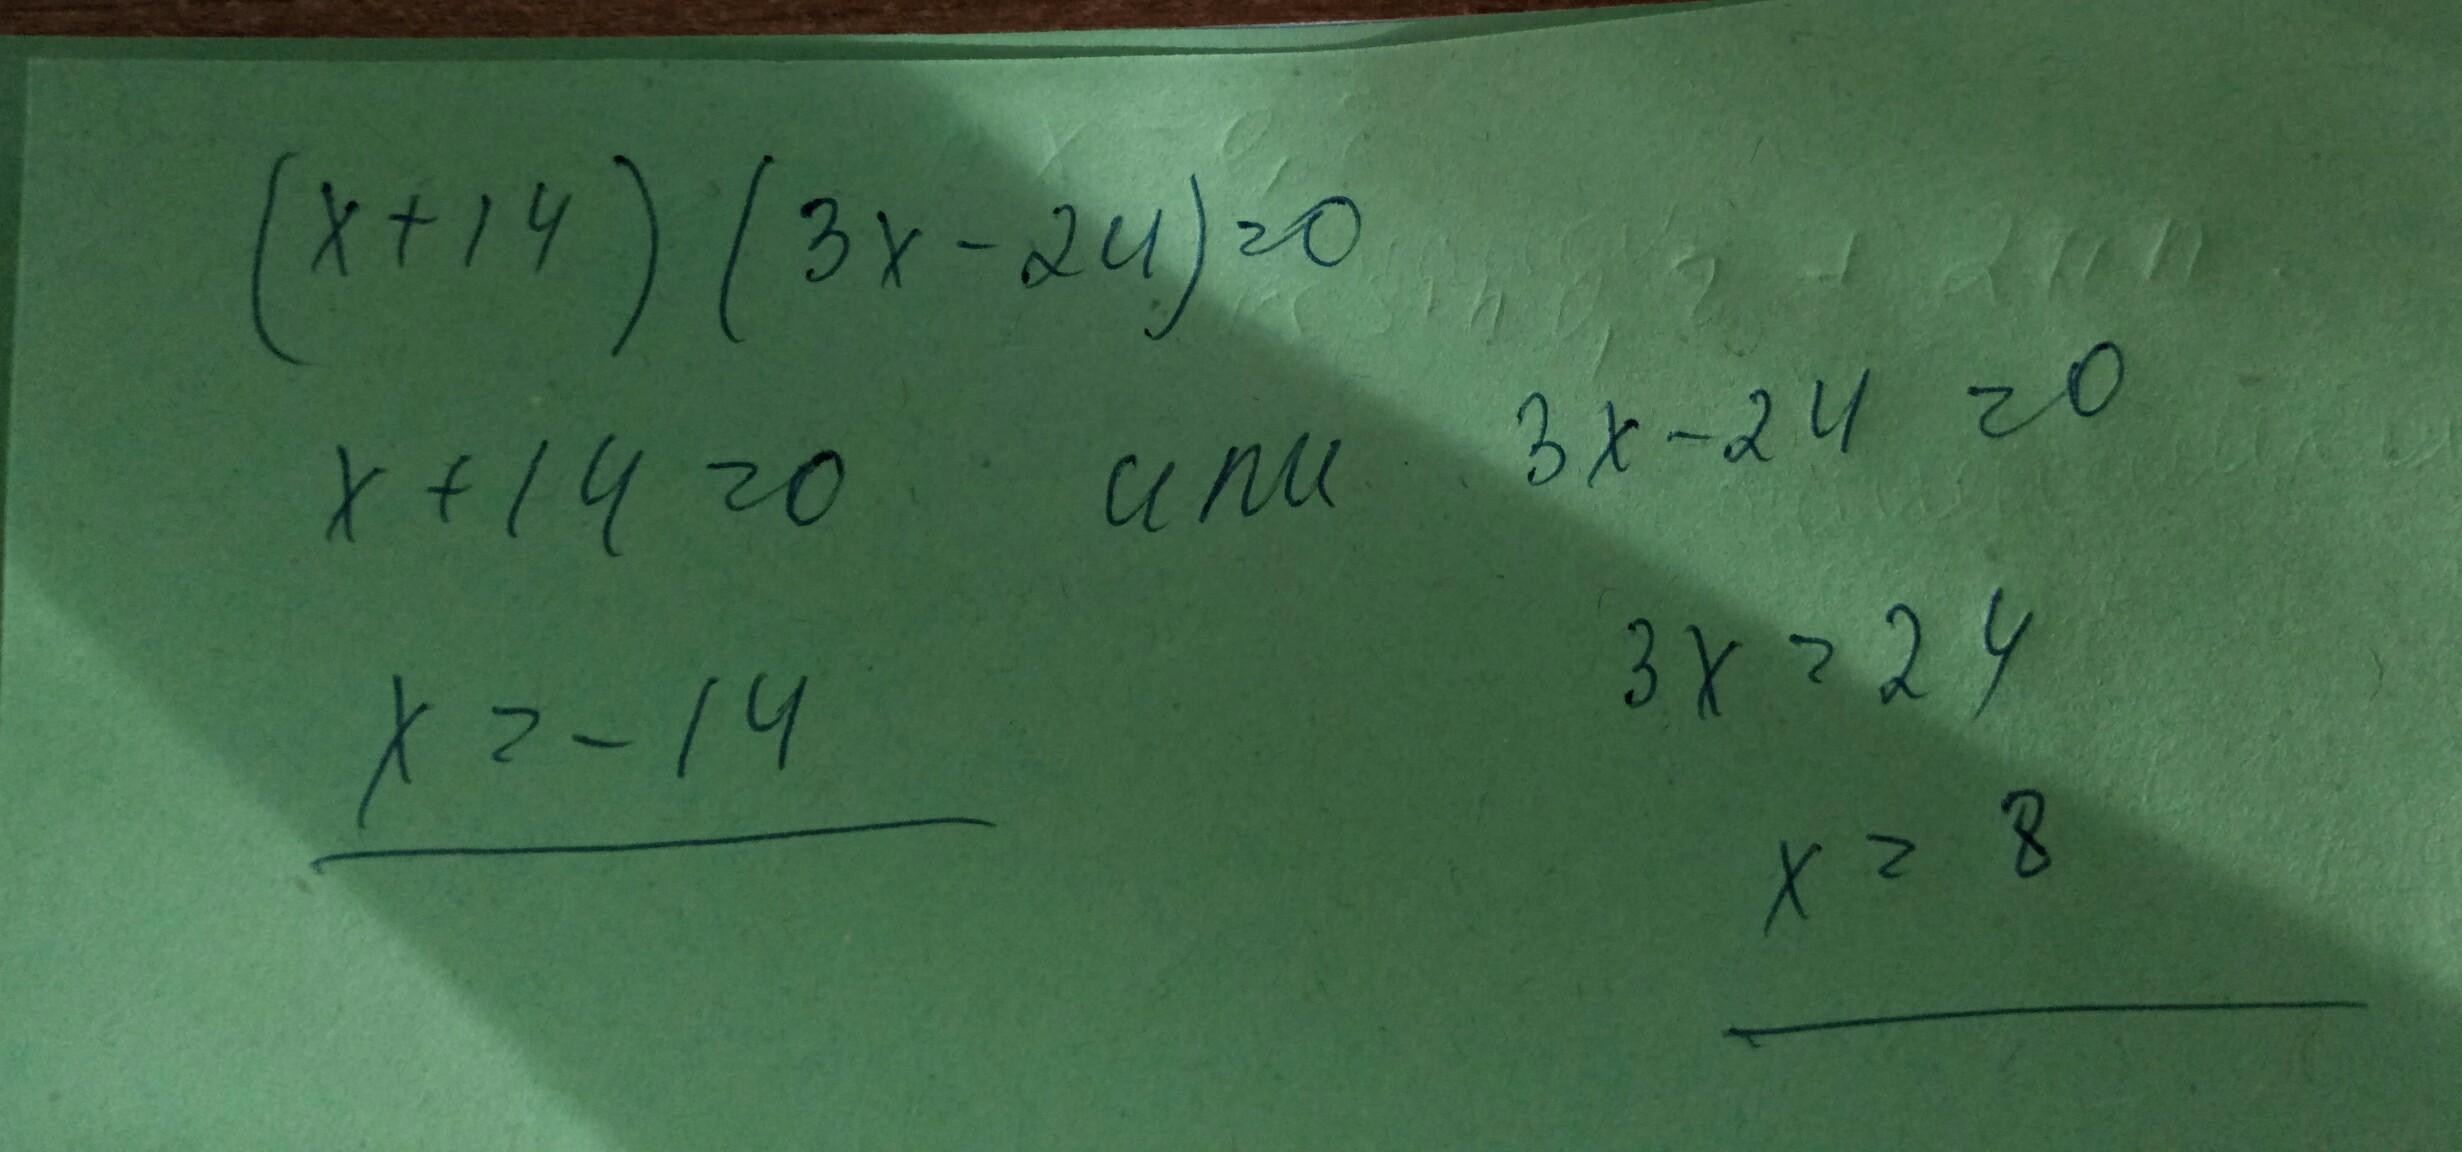 (x+14)(3x-24)=0
x+14=0 или 3x-24=0
3x=24
x=-14
x=8